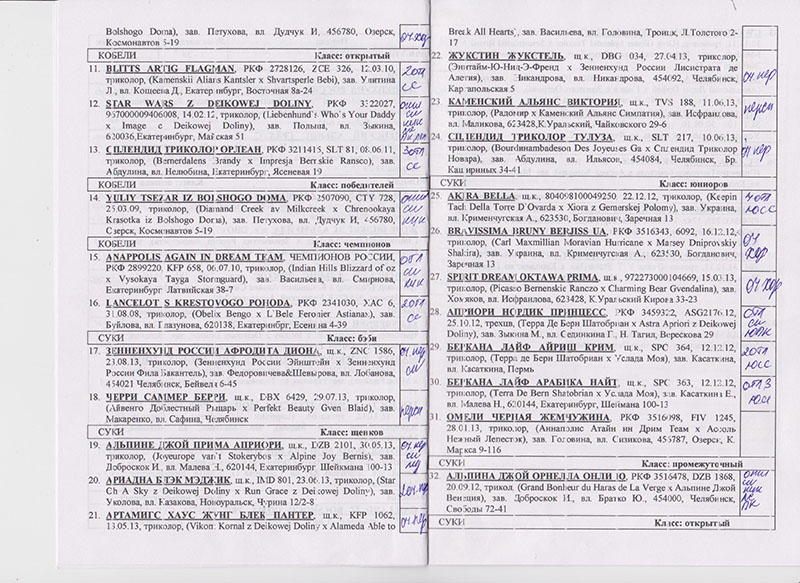 Bolshogo Doma), зав. Петухова, вл. Дудчук И, 456780, Озерск,
Космонавтов 5-19
КОБЕЛИ Класс: открытый
11. BLITTS ARTIG FLAGMAN, РКФ 2728126, ZCE 326, 12.03.10,
триколор, (Kamenskii Alians Kantsler x Shvartsperle Bebi), зав. Улитина
Л., вл. Кощеева Д., Екатеринбург, Восточная 8а-24
2отл
СС
12. STAR WARS Z DEIKOWEJ DOLINY, РКФ 3522027,
957000009406008, 14.02.12, триколор, (Liebenhund's Who's Your Daddy
x Image с Deikowej Doliny), зав. Польша, вл. Зыкина,
620036, Екатеринбург, Майская 51
13. СПЛЕНДИД ТРИКОЛОР ОРЛЕАН, РКФ 3211415, SLT 81, 08.06.11,
триколор, (Bernerdalens Brandy x Impresja Bernskie Ransco), зав.
Абдулина, вл. Нелюбина, Екатеринбург, Ясеневая 19
3отл
СС
КОБЕЛИ Класс: победителей
14. YULIY TSEZAR IZ BOLSHOGO DOMA, РКФ 2507090, CTY 728,
25.03.09, триколор, (Diamond Creek av Milkcreek x Chrenookaya
Krasotka iz Bolshogo Doma), зав. Петухова, вл. Дудчук И, 456780,
Озерск, Космонавтов 5-19
КОБЕЛИ Класс: чемпионов
15. ANAPPOLIS AGAIN IN DREAM TEAM, ЧЕМПИОН РОССИИ,
РКФ 2899220, KFP 658, 06.07.10, триколор, (Indian Hills Blizzard of oz
x Vysokaya Tayga Stormguard), зав. Васильева, вл. Смирнова,
Екатеринбург Латвийская 38-7
16. LANCELOT S KRESTOVOGO POHODA, РКФ 2341030, XAC 6,
31.08.08, триколор, (Obelix Bengo x L'Bele Feronier Astiana), зав.
Буйлова, вл. Глазунова, 620138, Екатеринбург, Есенина 4-39
2отл
СС
СУКИ Класс: бэби
17. ЗЕННЕНХУНД РОССИИ АФРОДИТА ДИОНА, щ.к., ZNC 1586,
23.08.13, триколор, (Зенненхунд России Эйнштейн x Зенненхунд
России Фила Бакантель), зав. Федоровичева&Шевырова, вл. Лобанова,
454021 Челябинск, Бейвеля 6-45
18. ЧЕРРИ САММЕР БЕРРИ, DBX 6429, 29.07.13, триколор,
(Айвенго Доблестный Рыцарь x Perfekt Beauty Gven Blaid), зав.
Макаренко, вл. Сафина, Челябинск
СУКИ Класс: щенков
19. АЛЬПИНЕ ДЖОЙ ПРИМА АПРИОРИ, щ.к., DZB 2101, 30.05.13,
триколор, (Joyeurope van't Stokerybos x Alpine Joy Bernis), зав.
Доброскок И., вл. Малева Н., 620144, Екатеринбург Шейкмана 100-13
20. АРИАДНА БЛЭК МЭДЖИК, щ.к., IMD 801, 23.06.13, триколор, (Star
Ch A Sky z Deikowej Doliny x Run Grace z Deikowej Doliny), зав.
Уколова, вл. Казакова, Новоуральск, Чурина 12/2-8
21. АРТАМИГС ХАУС ЖУНГ БЛЕК ПАНТЕР, щ.к., KFP 1062,
13.05.13, триколор, (Vikont Kornal z Deikowej Doliny x Alameda Able to
Break All Hearts), зав. Васильева, вл. Головина, Троицк, Л.Толстого 2-
17
22. ЖУКСТИН ЖУКСТЕЛЬ, щ.к., DBG 034, 27.04.13, триколор,
(Энитайм-Ю-Нид-Э-Френд x Зенненхунд России Лисистрата де
Алегия), зав. Никандрова, вл. Никандрова, 454092, Челябинск,
Карпапольская 5
23. КАМЕНСКИЙ АЛЬЯНС ВИКТОРИЯ, щ.к., TVS 188, 11.06.13,
триколор, (Радомир x Каменский Альянс Симпатия), зав. Исфралова,
вл. Маликова, 623428, К.Уральский, Чайковского 29-6
24. СПЛЕНДИД ТРИКОЛОР ТУЛУЗА, щ.к., SLT 217, 10.06.13,
триколор, (Bourdinambadeson Des Joyeuses Ga x Сплендид Триколор
Новара), зав. Абдулина, вл. Ильясов, 454084, Челябинск, Бр.
Кашириных 34-41
СУКИ Класс: юниоров
25. AKIRA BELLA, щ.к., 804098100049250 22.12.12, триколор, (Keepin
Tach Della Torre D'Ovarda x Xiora z Gemerskej Polomy), зав. Украина,
вл. Крименчугская А., 623530, Богданович, Заречная 13
4отл
ЮСС
26. BRAVISSIMA BRUNY BERJISS UA, РКФ 3516343, 6092, 16.12.12,
триколор, (Carl Maxximillian Moravian Hurricane x Marsey Dniprovskiy
Shakira), зав. Украина, вл. Крименчугская А., 623530, Богданович,
Заречная 13
27. SPIRIT DREAM OKTAWA PRIMA, щ.к., 972273000104669, 15.03.13,
триколор, (Picasso Bernenskie Ranczo x Charming Bear Gvendalina), зав.
Хомяков, вл. Исфраилова, 623428, К.Уральский Кирова 33-23
28. АПРИОРИ НОРДИК ПРИНЦЕСС, РКФ 3459322, ASG2176.12,
25.10.12, трехцв, (Терра Де Берн Шатобриан x Astra Apriori z Deikowej
Doliny), зав. Зыкина М., вл. Сединкина Г., Н. Тагил, Верескова 29
29. БЕРКАНА ЛАЙФ АЙРИШ КРИМ, щ.к., SPC 364, 12.12.12,
триколор, (Терра де Берн Шатобриан x Услада Моя), зав. Касаткина,
вл. Касаткина, Пермь
2отл
ЮСС
30. БЕРКАНА ЛАЙФ АРАБИКА НАЙТ, щ.к., SPC 363, 12.12.12,
триколор, (Terra De Bern Shatobrian x Услада Моя), зав. Касаткина Е.,
вл. Малева Н., 620144, Екатеринбург, Шейкмана 100-13
31. ОМЕЛИ ЧЕРНАЯ ЖЕМЧУЖИНА, РКФ 3516098, FIV 1245,
28.01.13, триколор, (Аннаполис Атайн ин Дрим Теам x Ассоль
Нежный Лепесток), зав. Головина, вл. Сизикова, 455787, Озерск, К.
Маркса 9-116
СУКИ Класс: промежуточный
32. АЛЬПИНА ДЖОЙ ОРНЕЛЛА ОНЛИ Ю, РКФ 3516478, DZB 1868,
20.09.12, триколор, (Grand Bonheur du Haras de La Verge x Альпине Джой
Венция), зав. Доброскок И., вл. Братко Ю., 454000, Челябинск,
Свободы 72-41
СУКИ Класс: открытый